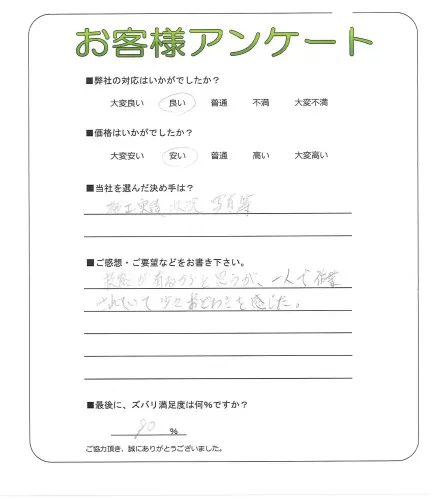 お客様アンケート
■弊社の対応はいかがでしたか？
大変良い 良い 普通 不満 大変不満
■価格はいかがでしたか？
大変安い 安い 普通 高い 大変高い
■当社を選んだ決め手は？
施工実績 状況 写真等
■ご感想・ご要望などをお書き下さい。
と思うが、一人で作業
されていて 少々 を感じた。
■最後に、ズバリ満足度は何％ですか？
90 ％
ご協力頂き、誠にありがとうございました。